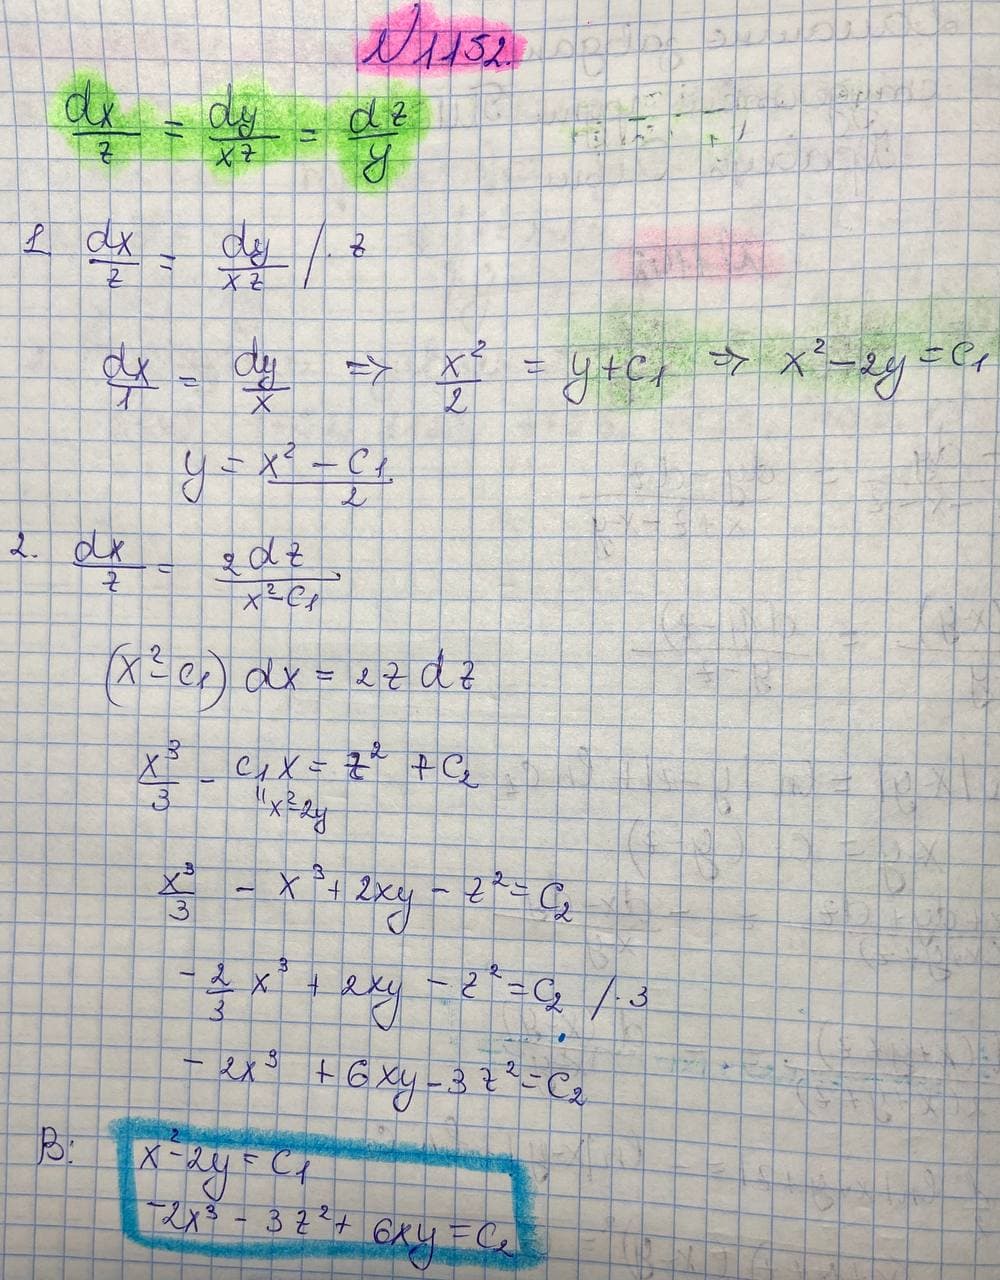 N1152.
dx/z = dy/xz = dz/y
1. dx/z = dy/xz / · z
dx/1 = dy/x => x²/2 = y + C₁ => x² - 2y = C₁
y = (x² - C₁)/2
2. dx/z = 2dz/(x² - C₁)
(x² - C₁) dx = 2z dz
x³/3 - C₁x = z² + C₂
" x² - 2y
x³/3 - x³ + 2xy - z² = C₂
- 2/3 x³ + 2xy - z² = C₂ / · 3
- 2x³ + 6xy - 3z² = C₂
В: x² - 2y = C₁
-2x³ - 3z² + 6xy = C₂